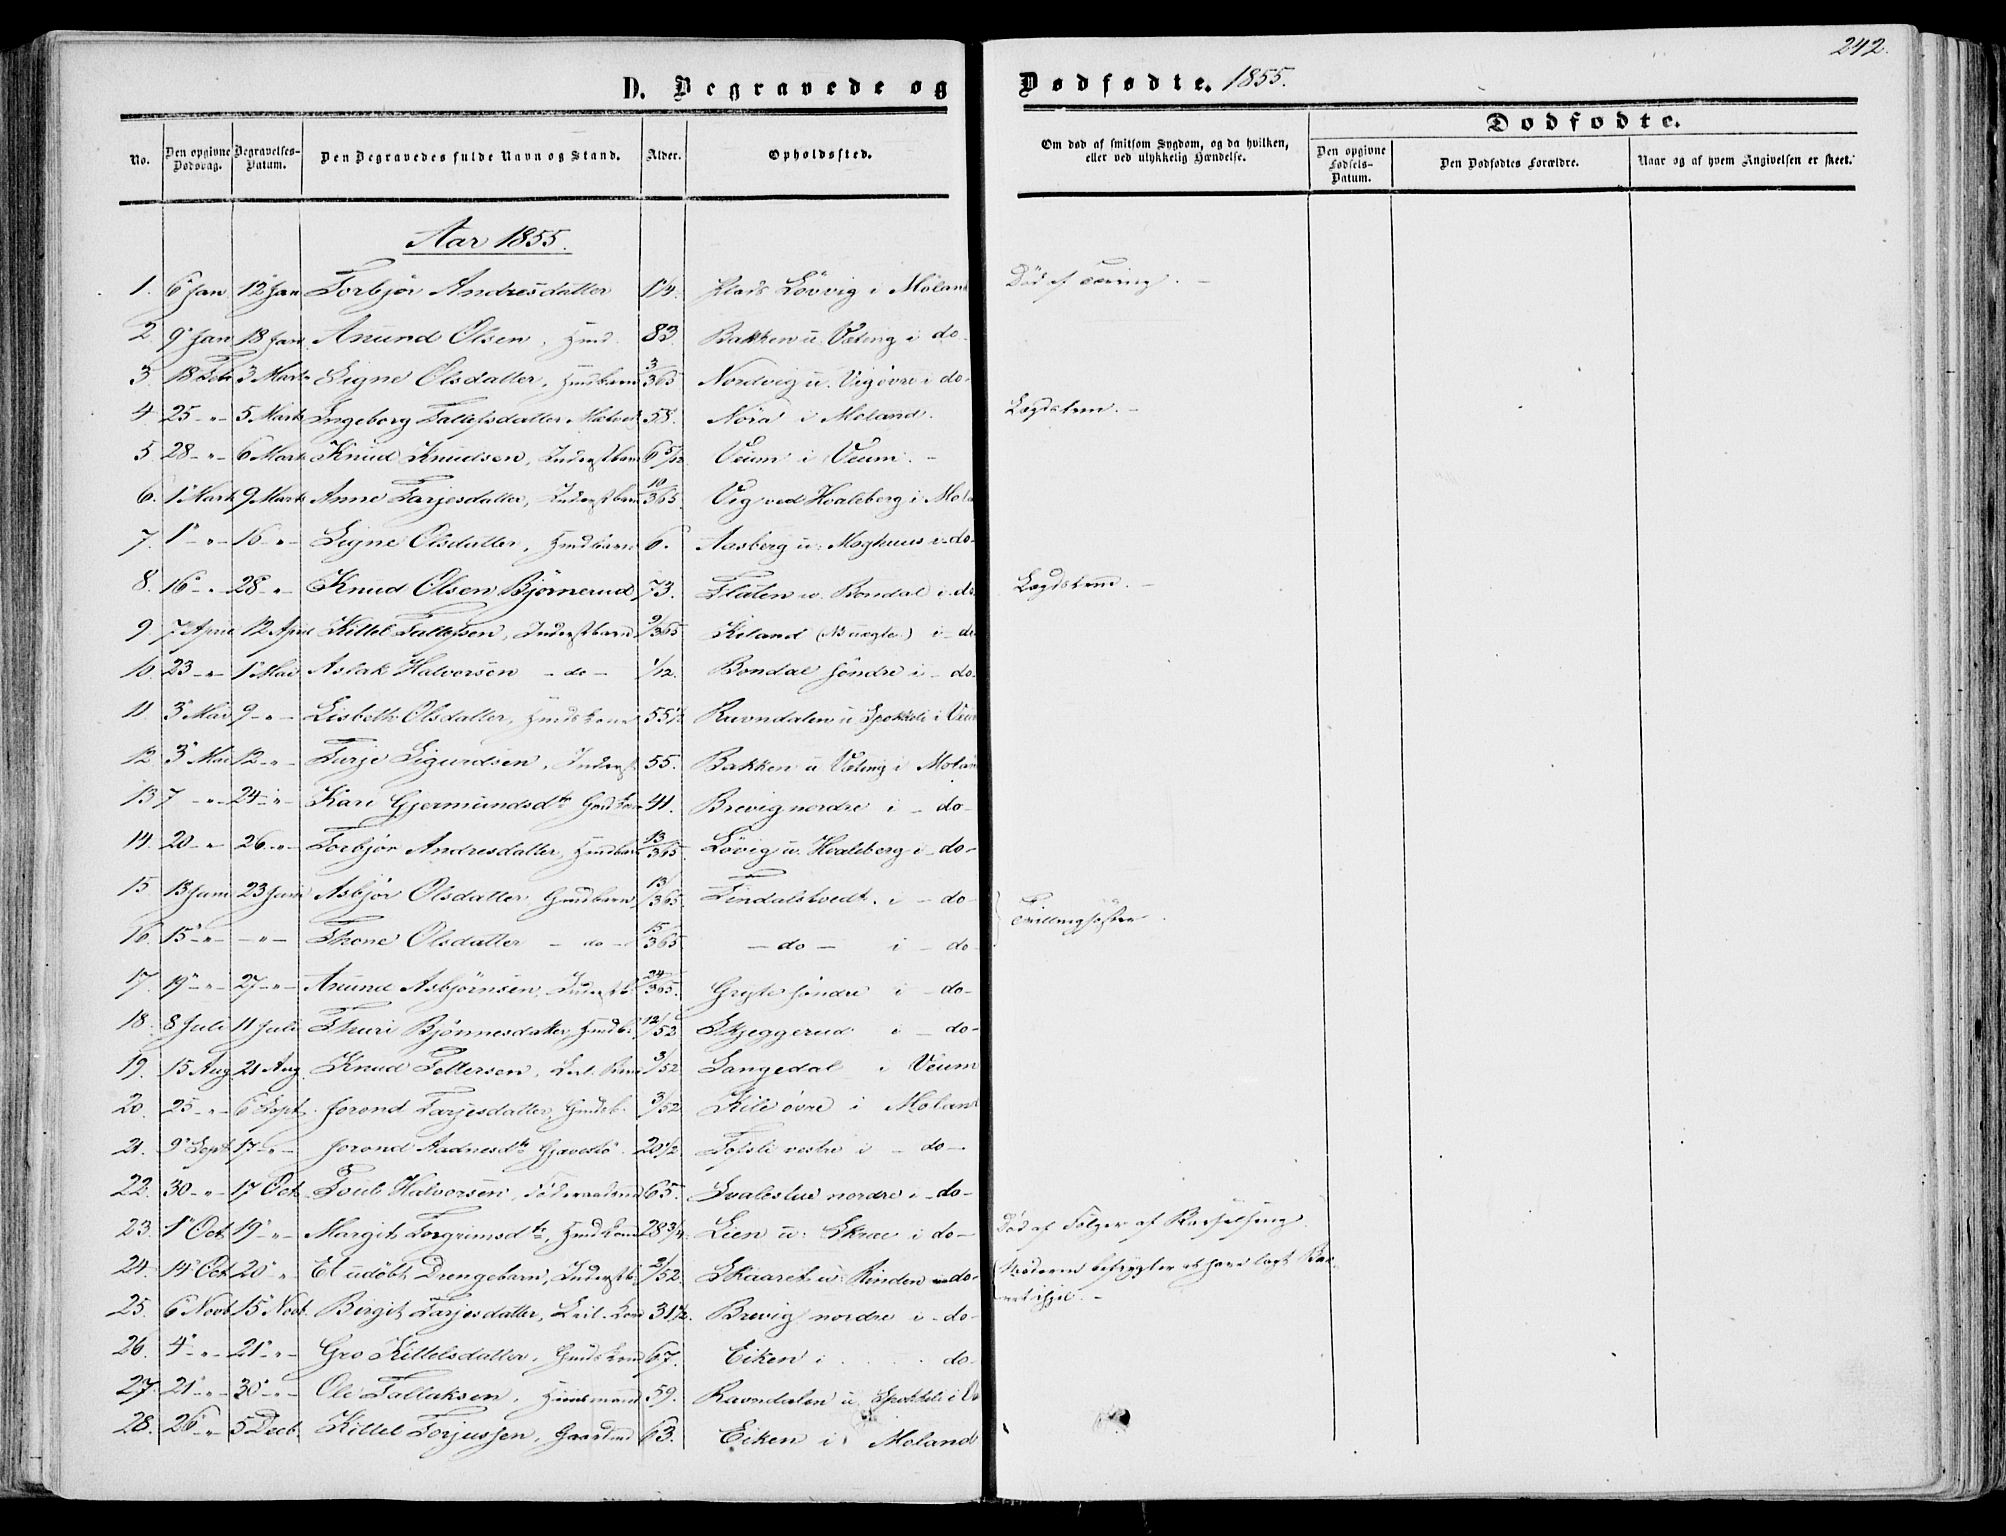 242.
D. Begravede og Dødfødte. 1855.
No. Den opgivne Dødsdag. Begravelses-Datum. Den Begravedes fulde Navn og Stand. Alder. Opholdssted. Om død af smitsom Sygdom, og da hvilken, eller ved ulykkelig Hændelse.
Dødfødte.
Den opgivne Fødsels-Datum. Den Dødfødtes Forældre. Naar og af hvem Angivelsen er skeet.
Aar 1855.
1. 6 Jan 12 Jan Torbjør Andresdatter 1/4. Plads Lövvig i Moland Død af Tæring. -
2 9 Jan 18 Jan Anund Olsen, Husmd. 83 Bakken u. Væting i do-
3. 18 Feb 3 Marts Signe Olsdatter, Husmbarn 3/365 Nordvig u. Vig övre i do-
4 25 -"- 5 Marts Ingeborg Tallefsdatter 58. Nöra i Moland. Lægdslem. -
5 28 -"- 6 Marts Knud Knudsen, Inderstbarn 6 5/12. Veum i Veum. -
6. 1 Marts 9 Marts Anne Tarjesdatter, Inderstbarn 10/365. Vig ved Hvaleberg i Mola
7. 1 -"- 16 -"- Signe Olsdatter, Husmbarn 6. Aasberg u. Moghuus i do-
8. 16 -"- 28 -"- Knud Olsen Bjørnerud 73. Flaten u. Bondal i do Lægdslem. -
9 7 April 12 April Kittel Tallefsen, Inderstbarn 2/365 Kiland i - do
10. 23 -"- 1 Mai Aslak Halvorsen - do - 1/12. Bondal søndre i - do.
11 3 Mai 9 -"- Lisbeth Olsdatter, Husmdskone 55 1/2 Ravndalen u Spokkeli i Veum
12 3 Mai 12 -"- Tarje Sigurdsen, Inderst. 55. Bakken u Væting i Moland
13 7 -"- 24 -"- Kari Gjermundsdtr Gmdkone 41. Brevig nordre i - do-
14. 20 -"- 26 -"- Torbjør Andresdatter, Husmbarn 13/365. Lövig u. Hvaleberg i - do-
15. 13 Juni 23 Juni Asbjør Olsdatter Gmdbarn 13/365. Tindalstvedt. i - do- Tvillingsøstre.
16. 15 -"- - " - Thone Olsdatter - do - 15/365 - do - i - do-
17. 19 -"- 27 -"- Anund Asbjörnsen, Inderstb. 24/365. søndre i - do-
18. 8 Juli 11 Juli Thuri Bjönnesdatter, Husmdb. 12/52 Skjeggerud i - do-
19. 15 Aug 21 Aug. Knud Tellefsen, Leil. Barn 3/52 Langedal i Veum
20. 25 -"- 6 Sept. Jorond Tarjesdatter, Gmdsb. 3/52. Kile övre i Moland
21. 9 Sept 17 -"- Jorond Aadnesdtr Gjavestö 20 1/2 Tofsli vestre i - do-
22. 30 -"- 17 Oct. Toul Halvorsen, Föderaadsmd 65. Svalestul nordre i - do-
23. 1 Oct. 19 -"- Margit Torgrimsdtr, Husmdkone 28 3/4. Lien u. Skree i do- Død af Følger af Barselseng.
24. 14 Oct 20 -"- Et udöbt Drengebarn, Inderstb. 2/52. Skaaret u. Rinden i do- Moderen befrygter at have lagt Bar-
net ihjel. -
25. 6 Novb. 15 Novb. Birgit Tarjesdatter, Leil. Kone 31 1/2. Brevig nordre i - do-
26. 4 -"- 21 -"- Gro Kittelsdatter, Gmdskone 67. Eiken i . . . do-
27. 21 -"- 30 -"- Ole Tallaksen, Huusmand 59. Ravndalen u. Spokkeli i Ve
28. 26 -"- 5 Decb. Kittel Torjussen, Gaardmd 63. Eiken i Moland